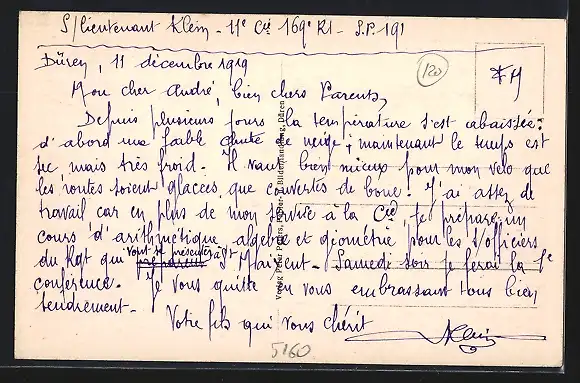 S/lieutenant Klein - 11e Cie 169e RI - S.P. 191
Düren, 11 décembre 1919
120
FM
Mon cher André, bien chers Parents,
Depuis plusieurs jours la température s'est abaissée :
d'abord une faible chute de neige ; maintenant le temps est
sec, mais très froid. Il vaut bien mieux pour mon vélo que
les routes soient glacées que couvertes de boue ! J'ai assez de
travail car en plus de mon service à la Cie, je prépare un
cours d'arithmétique, algèbre et géométrie pour les s/officiers
du Rgt qui vont se présenter à St Maixent. Samedi soir je ferai la 1e
conférence. Je vous quitte en vous embrassant tous bien
tendrement.
Votre fils qui vous chérit
Klein
5160
Verlag Peter Pütjes, Papier- u. Bilderhandlung, Düren